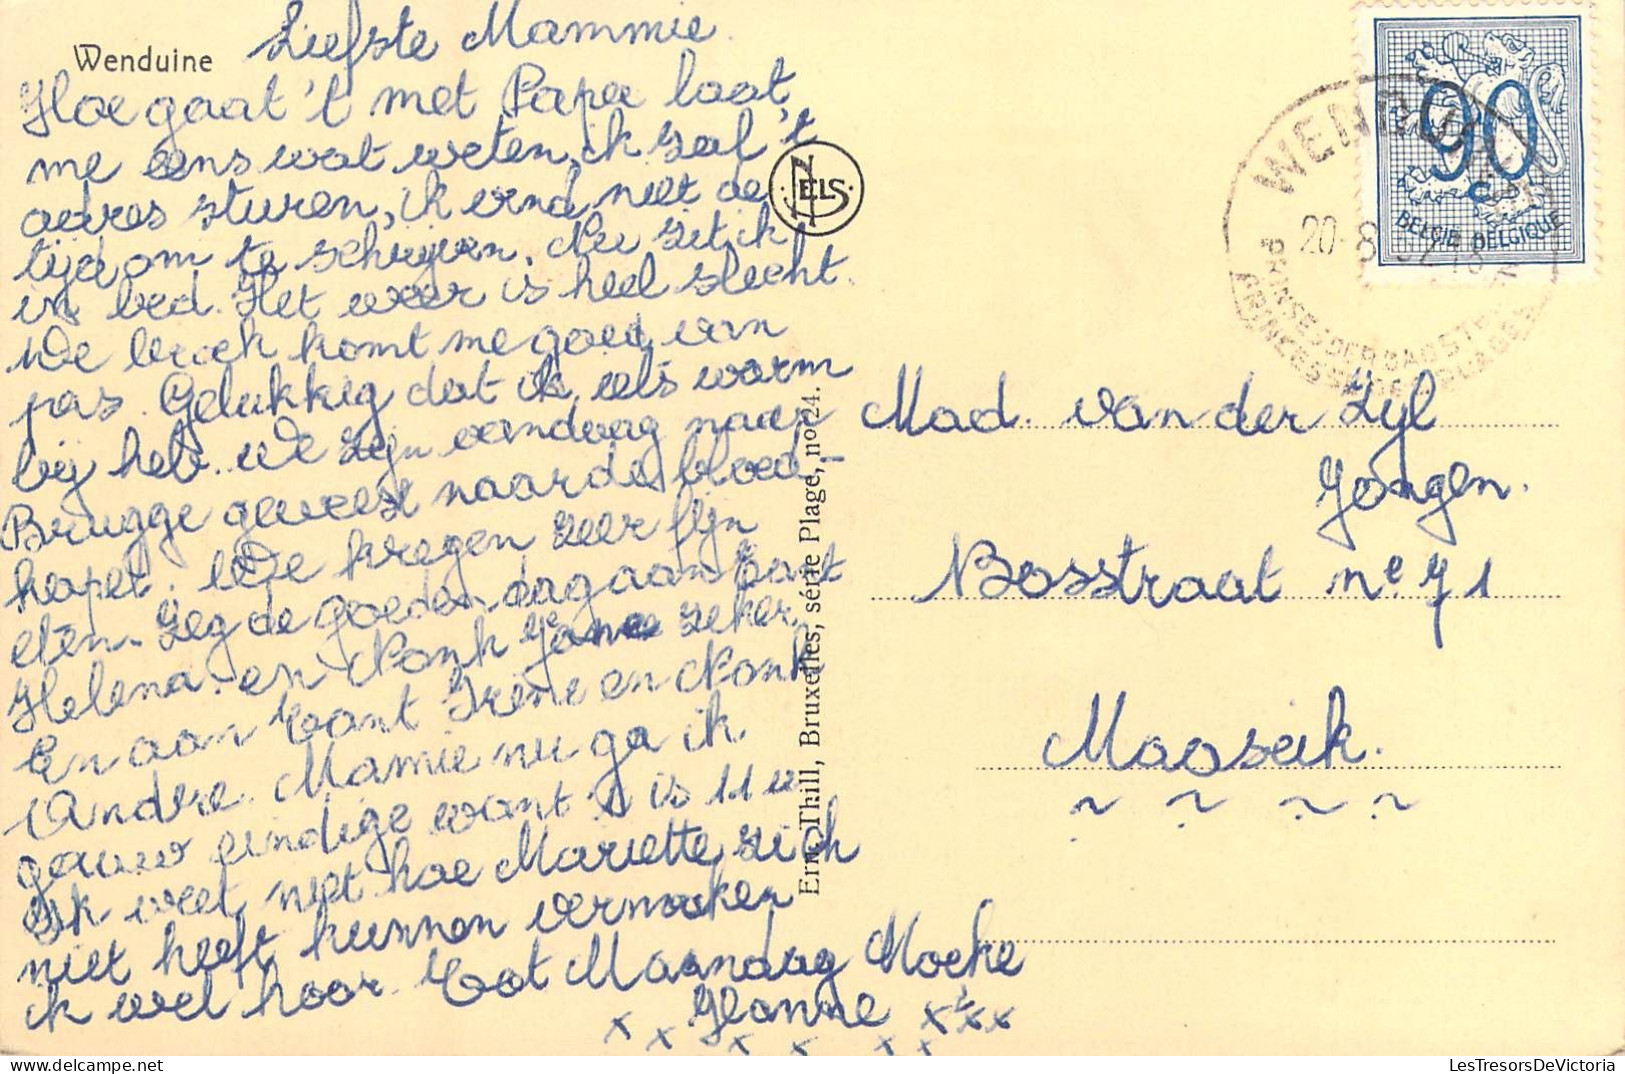 Wenduine
Liefste Mammie.
Hoe gaat 't met Papa laat
me eens wat weten, ik zal 't
adres sturen, ik vind niet de
tijd om te schrijven. Nu zit ik
in bed. Het weer is heel slecht.
We broek komt me goed van
pas. Gelukkig dat ik iets warm
bij heb. We zijn vandaag naar
Brugge geweest naar de bloed-
We kregen zeer fijn
eten. Zeg de goeden dag aan Tant
Helena. en Nonk Jance zeker,
En aan Tant Irene en Nonk
Andre. Mamie nu ga ik
gauw eindige want 't is 11 u
Ik weet niet hoe Mariette zich
niet heeft kunnen vermaken
ik wel hoor. Tot Maandag Moeke
x x x x x x x x x
NELS
Ern. Thill, Bruxelles, série Plage, no 24.
90
BELGIE BELGIQUE
WENDUINE
20-8
PRINSES DER BADSTEDEN
PRINCESSE DES PLAGES
Mad. van der Zyl
Jongen.
Bosstraat no 71
Maaseik.
~ ~ ~ ~
LesTresorsDeVictoria